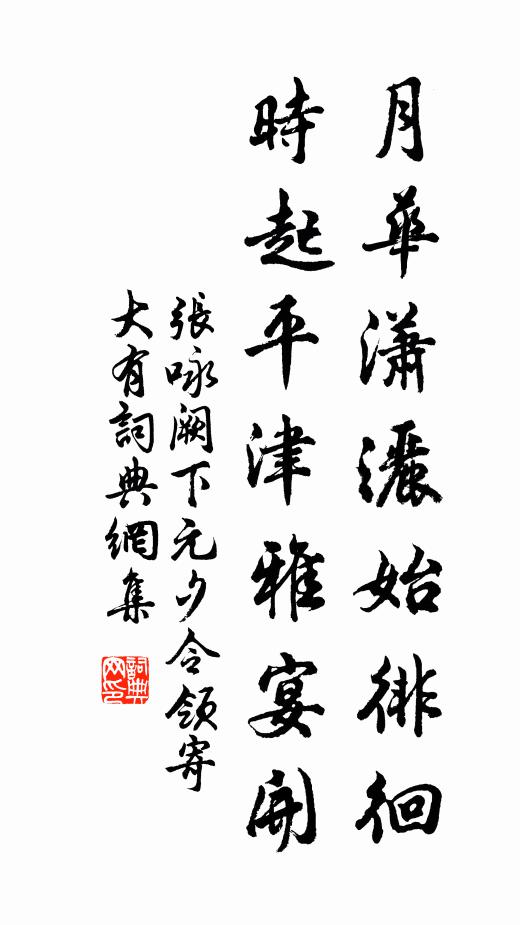 月華瀟灑始徘徊
時起平津雅宴開
張咏闕下元夕令領寄
大有詞典網集
詞典
网印